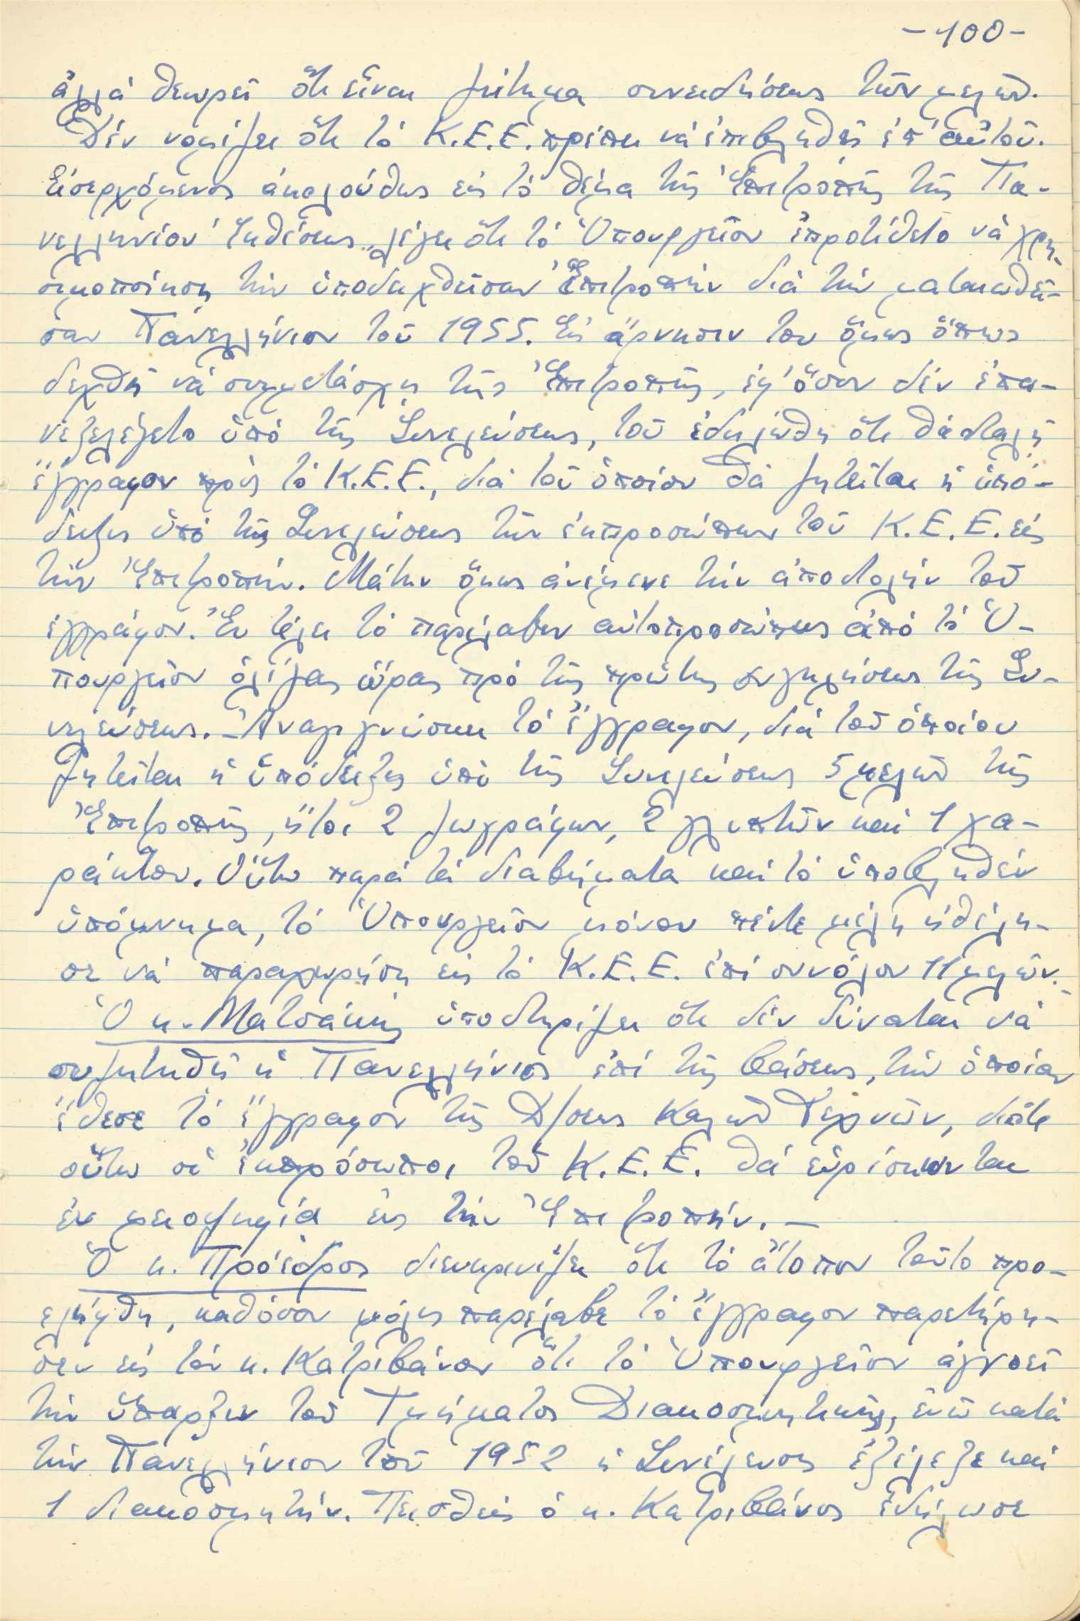 -100-
ἀλλά θεωρεῖ ὅτι εἶναι ζήτημα συνειδήσεως τῶν μελῶν.
Δέν νομίζει ὅτι τό Κ.Ε.Ε. πρέπει νά ἐπιβληθεῖ ἐπ' αὐτοῦ.
Εἰσερχόμενος ἀκολούθως εἰς τό θέμα τῆς Ἐπιτροπῆς τῆς Πα-
νελληνίου Ἐκθέσεως λέγει ὅτι τό Ὑπουργεῖον ἐπροτίθετο νά χρη-
σιμοποιήση τήν ὑποδειχθεῖσαν Ἐπιτροπήν διά τήν ματαιωθεῖ-
σαν Πανελλήνιον τοῦ 1955. Εἰς ἄρνησιν του ὅμως ὅπως
δεχθῆ νά συμμετάσχη τῆς Ἐπιτροπῆς, ἐφ' ὅσον δέν ἐπα-
νεξελέγετο ὑπό τῆς Συνελεύσεως, τοῦ ἐδηλώθη ὅτι θά σταλῆ
ἔγγραφον πρός τό Κ.Ε.Ε., διά τοῦ ὁποίου θά ζητεῖται ἡ ὑπό-
δειξις ὑπό τῆς Συνελεύσεως τῶν ἐκπροσώπων τοῦ Κ.Ε.Ε. εἰς
τήν Ἐπιτροπήν. Μάτην ὅμως ἀνέμενε τήν ἀποστολήν τοῦ
ἐγγράφου. Ἐν τέλει τό παρέλαβεν αὐτοπροσώπως ἀπό τό Ὑ-
πουργεῖον ὀλίγας ὥρας πρό τῆς πρώτης συγκλήσεως τῆς Συ-
νελεύσεως. - Ἀναγιγνώσκει τό ἔγγραφον, διά τοῦ ὁποίου
ζητεῖται ἡ ὑπόδειξις ὑπό τῆς Συνελεύσεως 5 μελῶν τῆς
Ἐπιτροπῆς, ἤτοι 2 ζωγράφων, 2 γλυπτῶν καί 1 χα-
ράκτου. Οὕτω παρά τά διαβήματα καί τό ὑποβληθέν
ὑπόμνημα, τό Ὑπουργεῖον μόνον πέντε μέλη ἠθέλη-
σε νά παραχωρήση εἰς τό Κ.Ε.Ε. ἐπί συνόλου 11 μελῶν.-
Ὁ κ. Ματσάκης ὑποστηρίζει ὅτι δέν δύναται νά
συζητηθῆ ἡ Πανελλήνιος ἐπί τῆς βάσεως, τήν ὁποίαν
ἔθεσε τό ἔγγραφον τῆς Δ/σεως Καλῶν Τεχνῶν, διότι
οὕτω οἱ ἐκπρόσωποι τοῦ Κ.Ε.Ε. θά εὑρίσκωνται
ἐν μειοψηφία εἰς τήν Ἐπιτροπήν. -
Ὁ κ. Πρόεδρος διευκρινίζει ὅτι τό ἄτοπον τοῦτο προ-
ελήφθη, καθόσον μόλις παρέλαβε τό ἔγγραφον παρετήρη-
σεν εἰς τόν κ. Κατριβάνον ὅτι τό Ὑπουργεῖον ἀγνοεῖ
τήν ὕπαρξιν τοῦ Τμήματος Διακοσμητικῆς, ἐνῶ κατά
τήν Πανελλήνιον τοῦ 1952 ἡ Συνέλευσις ἐξέλεξε καί
1 διακοσμητήν. Πεισθείς ὁ κ. Κατριβάνος ἐδήλωσε